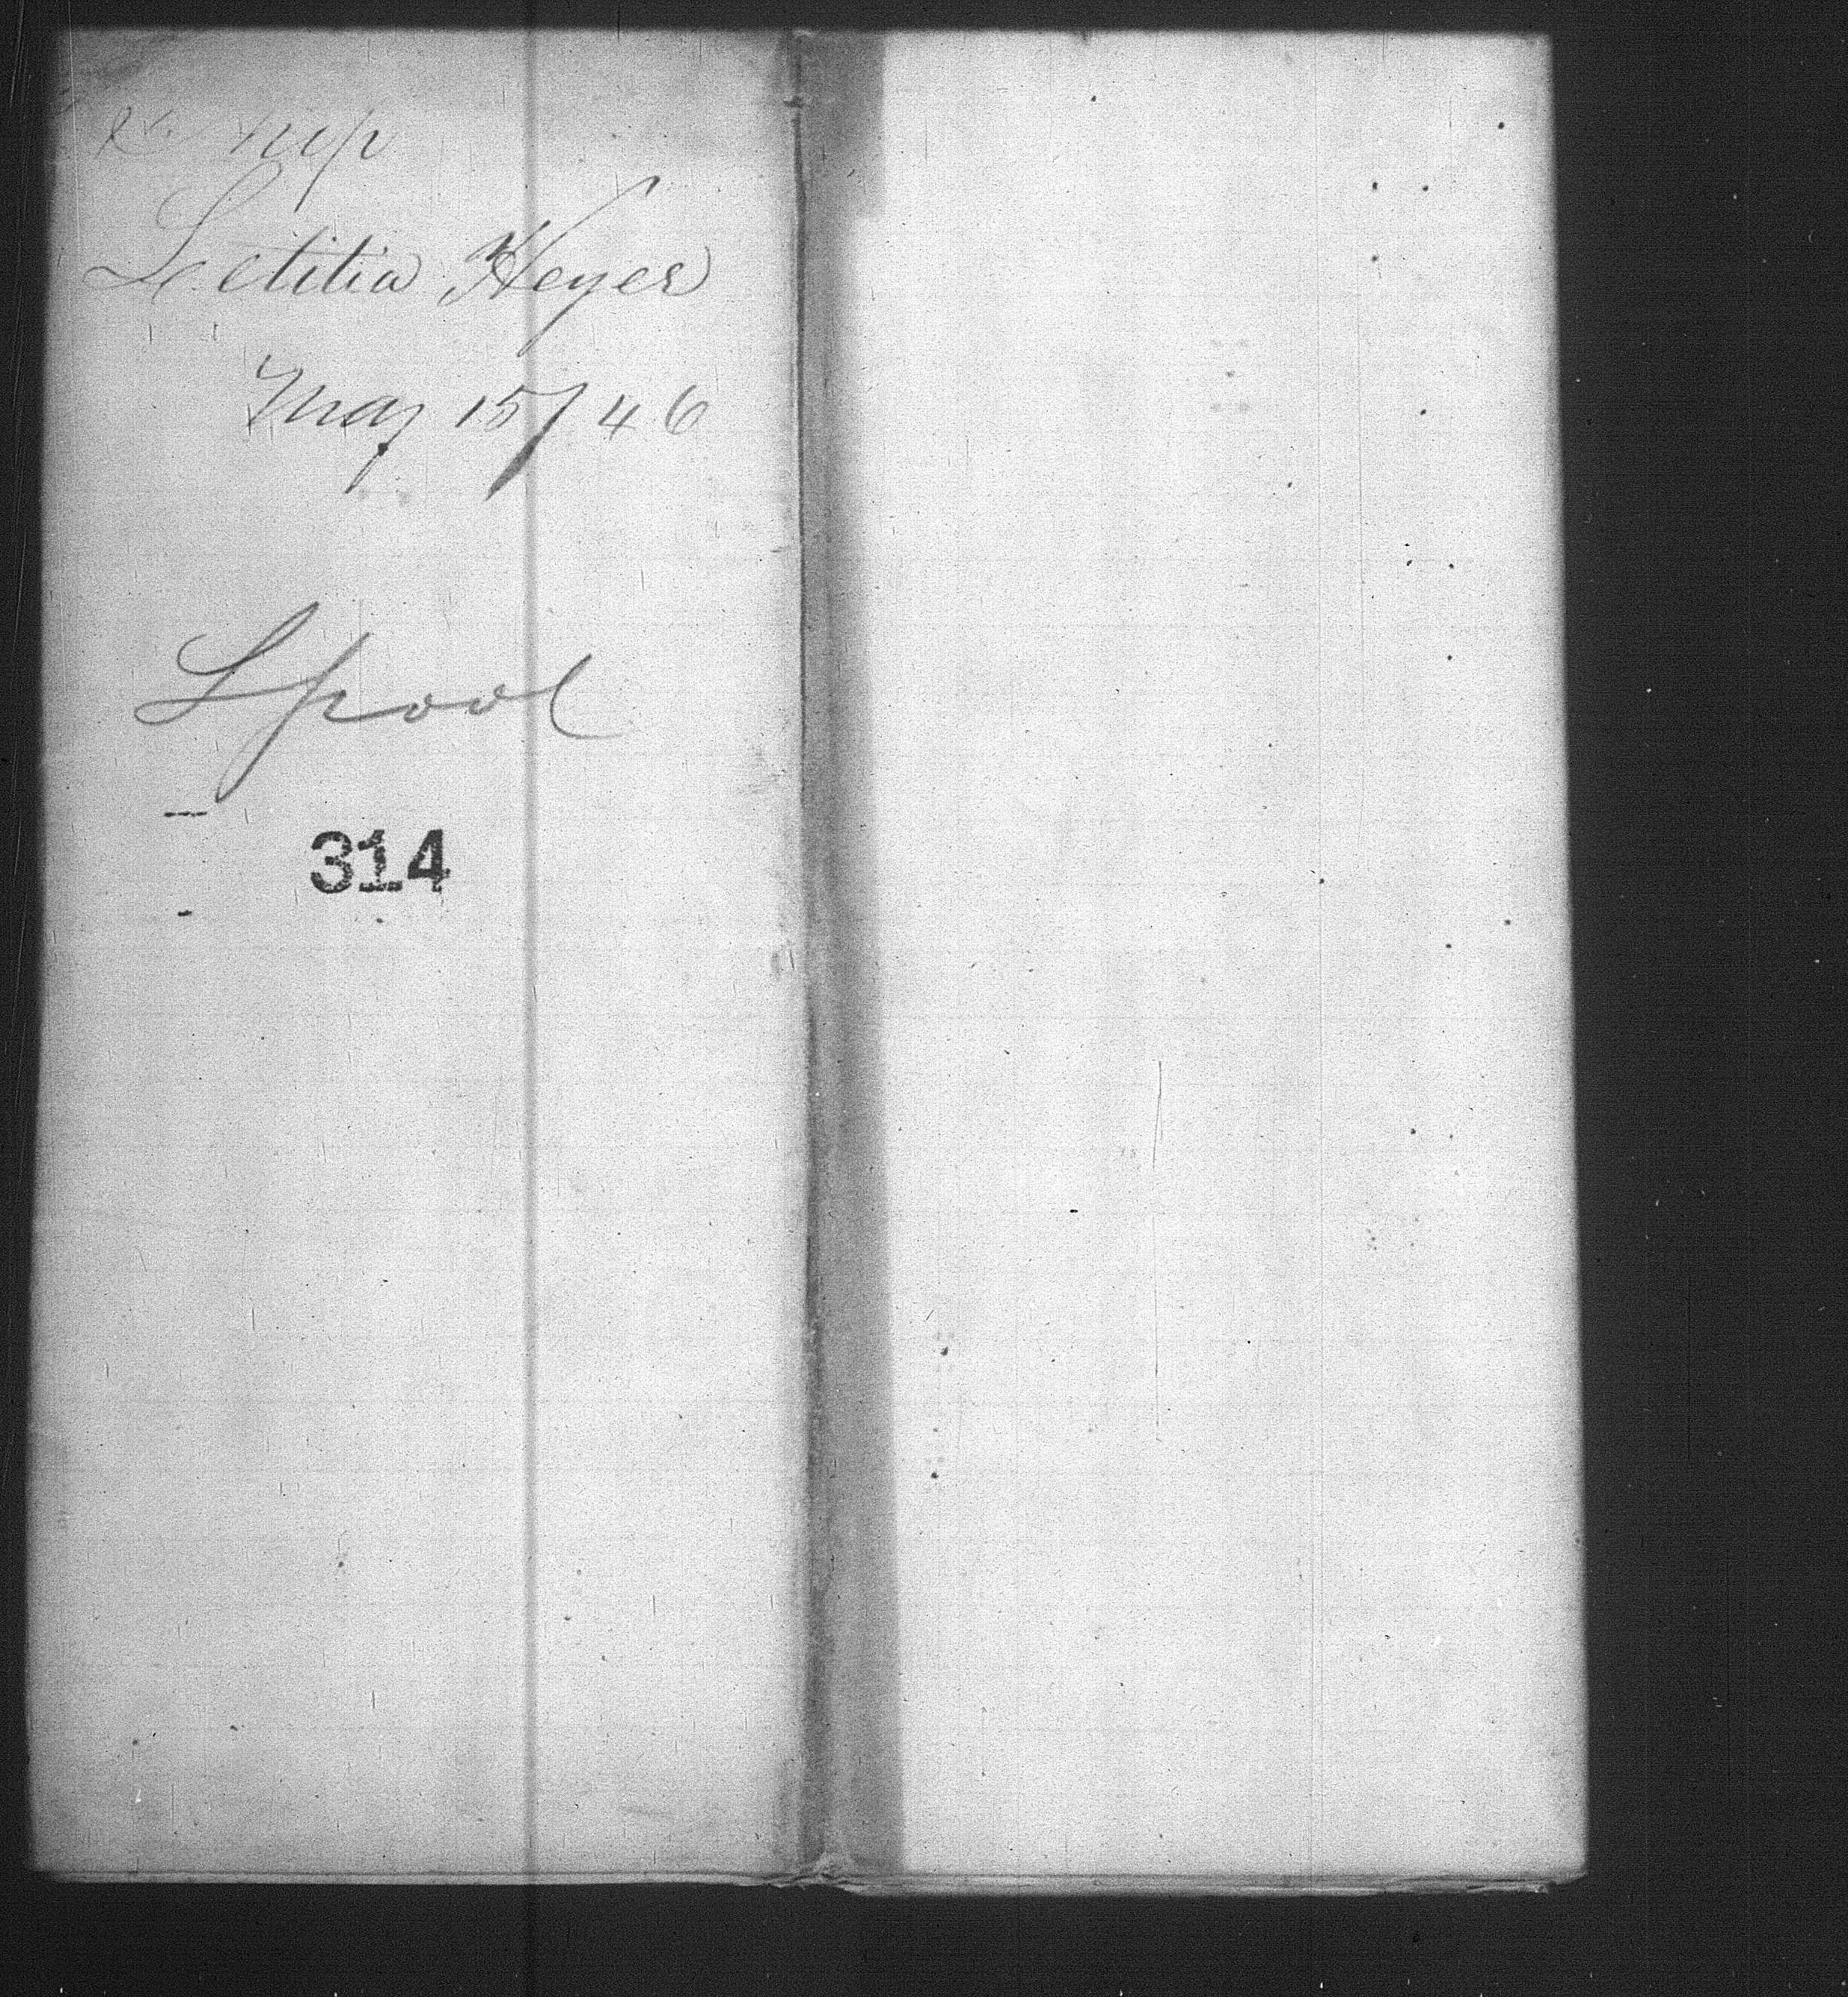 Ship
Laetitia Heyer
May 15/46
Lpool
314